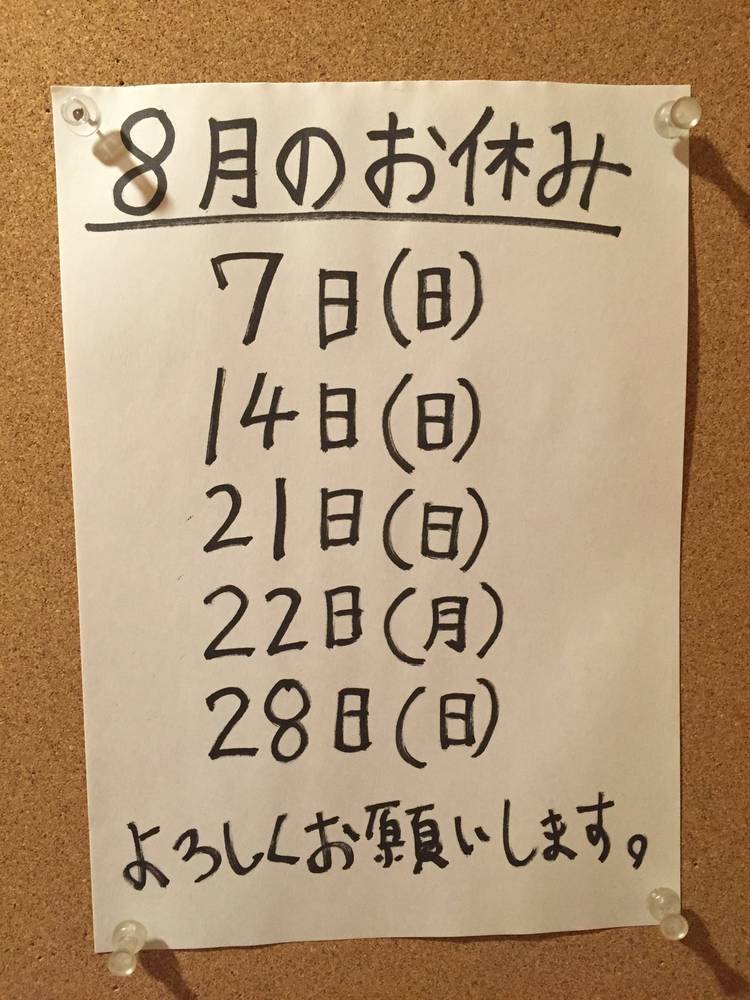 8月のお休み
7日(日)
14日(日)
21日(日)
22日(月)
28日(日)
よろしくお願いします。